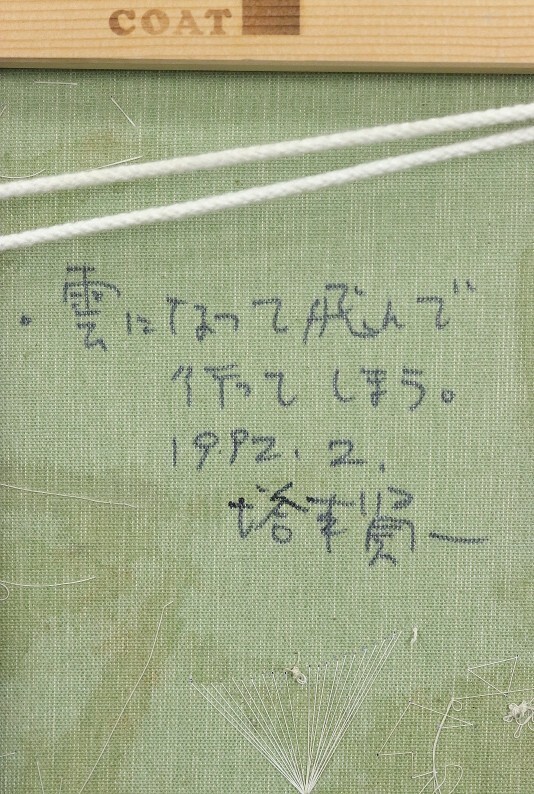 COAT
・雲になって飛んで
行ってしまう。
1992.2.
塔本賢一